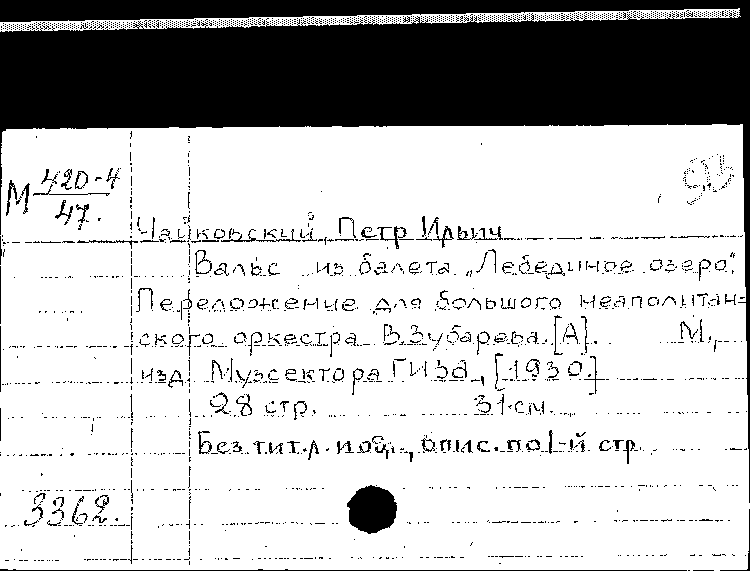 М 420-4
47.
Чайковский, Петр Ильич
Вальс из балета „Лебединое озеро".
Переложение для большого неаполитан=
ского оркестра В. Зубарева. [А]. М.,
изд. Музсектора ГИЗа, [1930.]
28 стр. 31 см.
Без тит. л. и обл., опис. по 1-й стр.
3362.